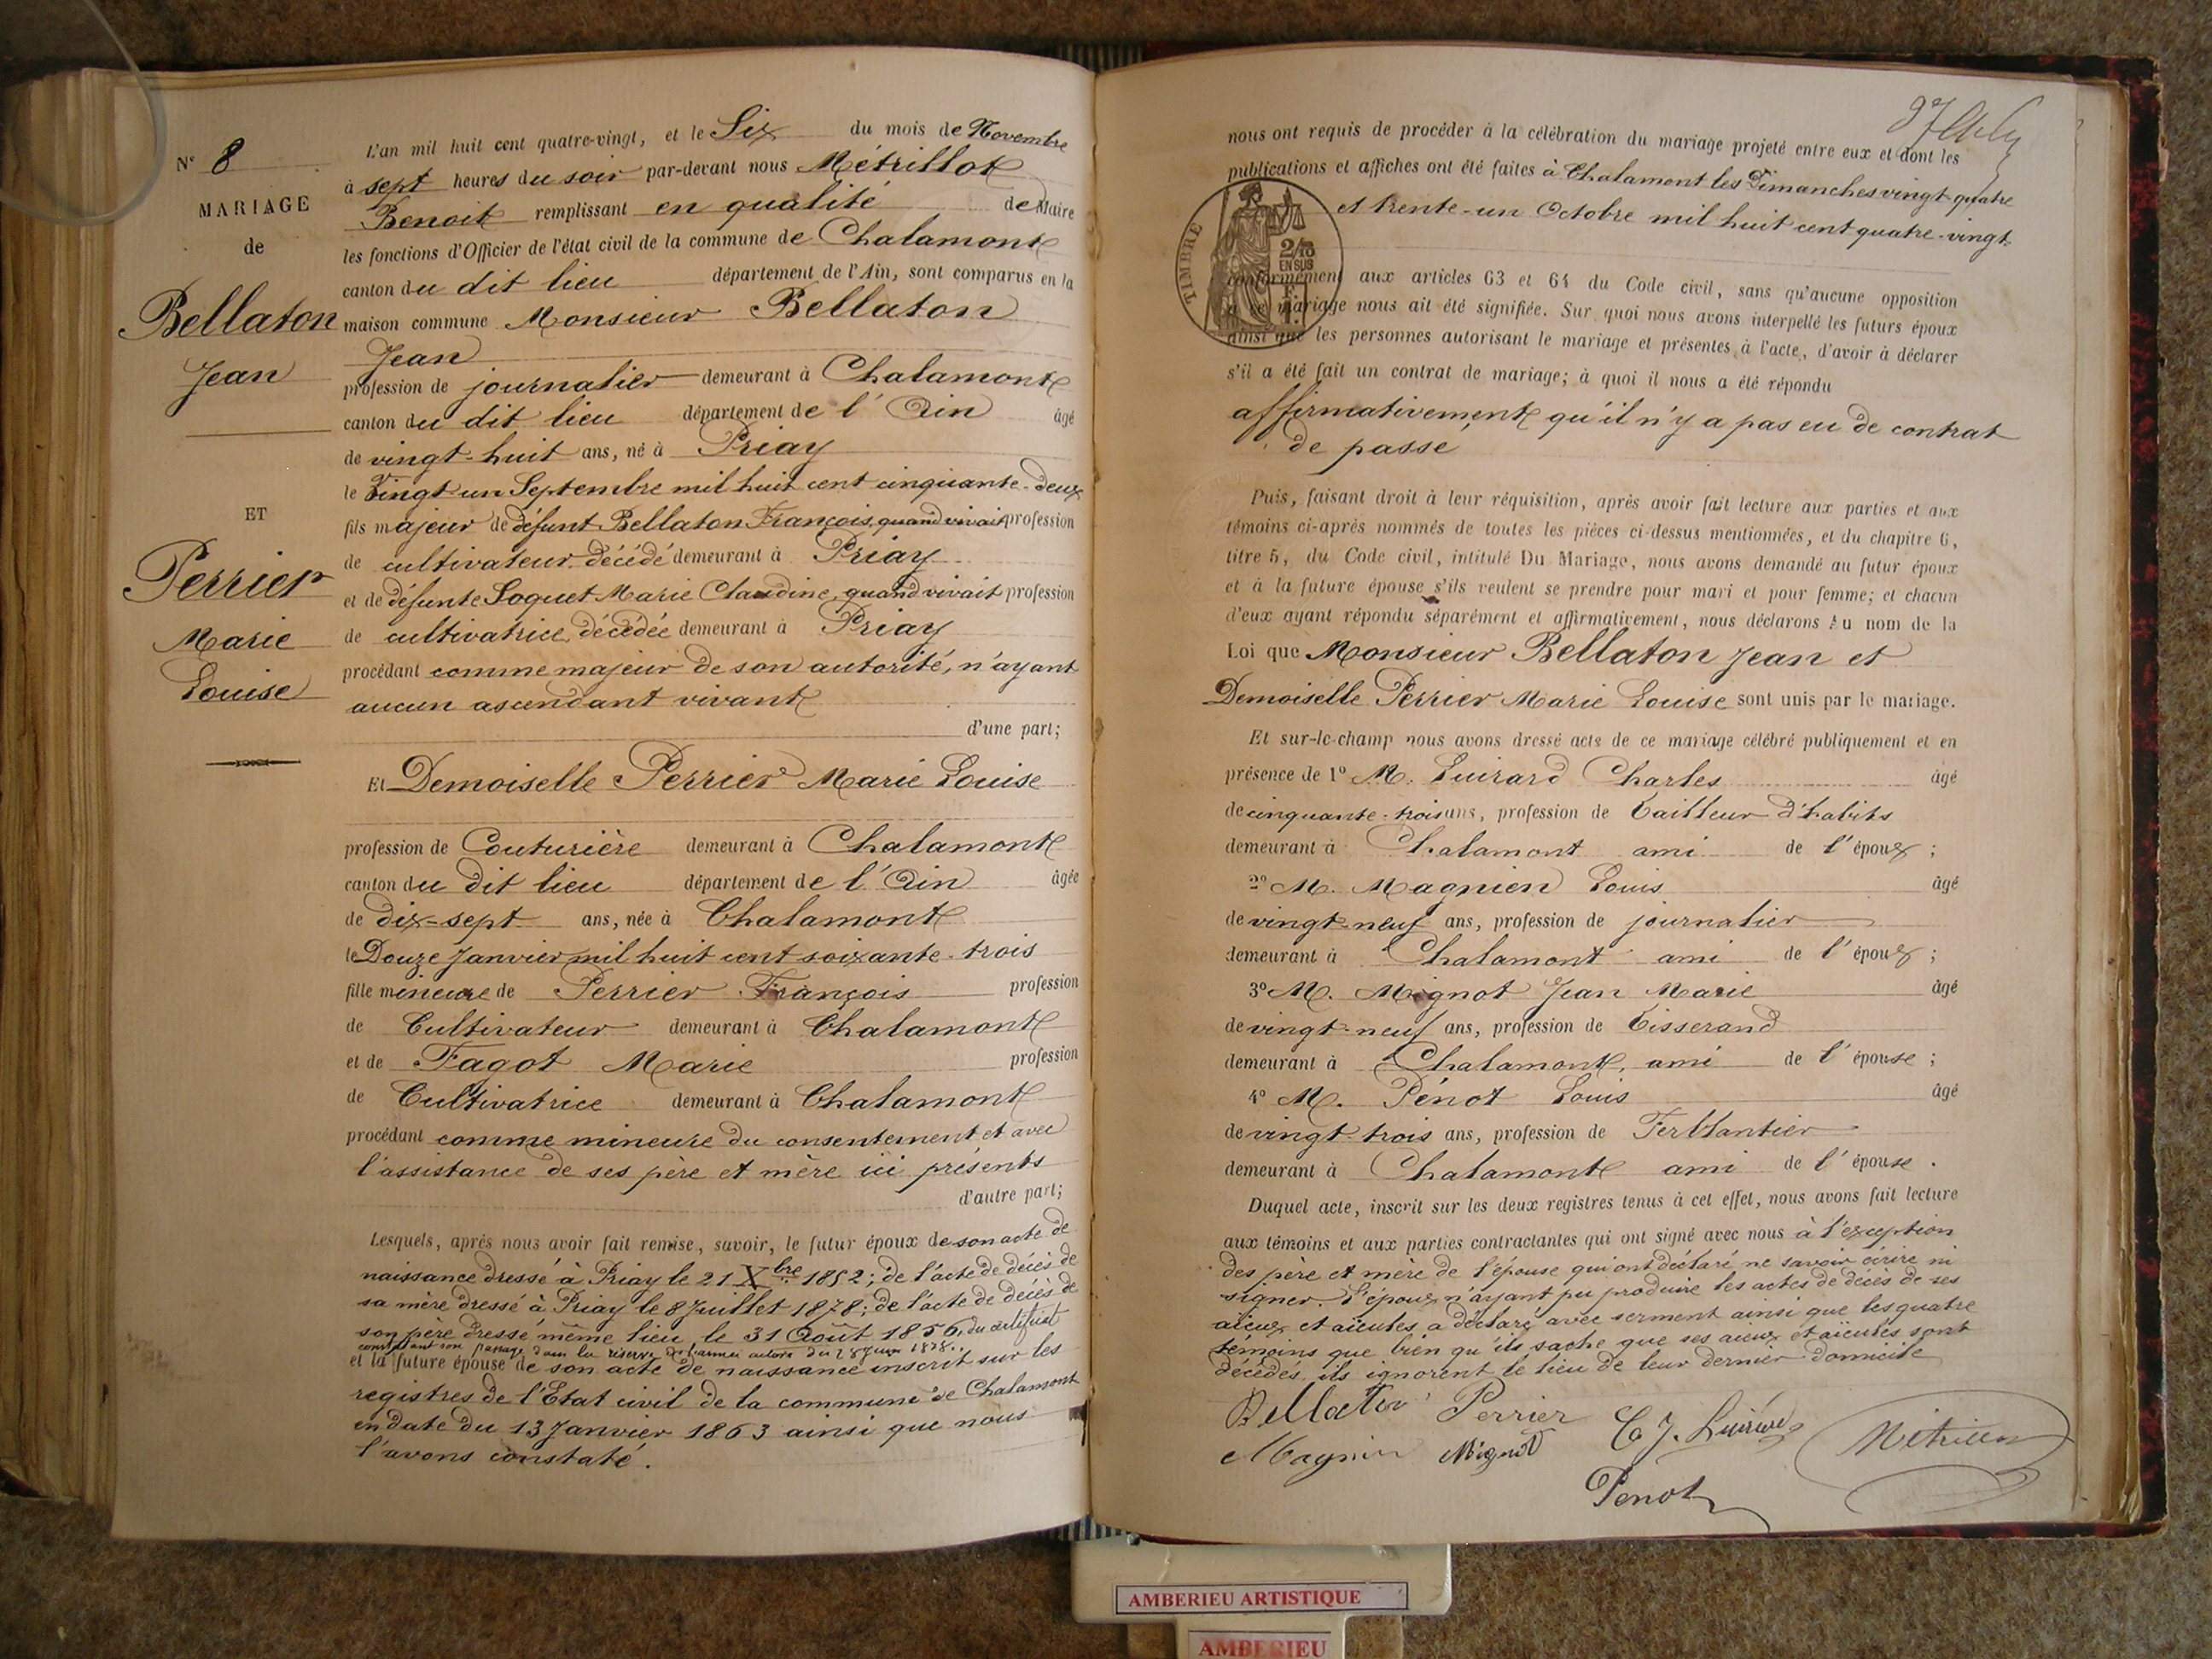 N° 8
MARIAGE
de
Bellaton
Jean
ET
Perrier
Marie
Louise
L'an mil huit cent quatre-vingt, et le Six du mois de Novembre
à sept heures du soir par-devant nous Métrillot
Benoit remplissant en qualité de Maire
les fonctions d'Officier de l'état civil de la commune de Chalamont
canton du dit lieu département de l'Ain, sont comparus en la
maison commune Monsieur Bellaton
Jean
profession de journalier demeurant à Chalamont
canton du dit lieu département de l'Ain âgé
de vingt-huit ans, né à Priay
le Vingt un Septembre mil huit cent cinquante-deux
fils majeur de défunt Bellaton François, quand vivait profession
de cultivateur décédé demeurant à Priay
et de défunte Loquet Marie Claudine, quand vivait profession
de cultivatrice, décédée demeurant à Priay
procédant comme majeur de son autorité, n'ayant
aucun ascendant vivant
d'une part;
Et Demoiselle Perrier Marie Louise
profession de Couturière demeurant à Chalamont
canton du dit lieu département de l'Ain âgée
de dix-sept ans, née à Chalamont
le Douze Janvier mil huit cent soixante-trois
fille mineure de Perrier François profession
de Cultivateur demeurant à Chalamont
et de Fagot Marie profession
de Cultivatrice demeurant à Chalamont
procédant comme mineure du consentement et avec
l'assistance de ses père et mère ici présents
d'autre part;
Lesquels, après nous avoir fait remise, savoir, le futur époux de son acte de
naissance dressé à Priay le 21 Xbre 1852; de l'acte de décès de
sa mère dressé à Priay le 8 Juillet 1878; de l'acte de décès de
son père dressé même lieu, le 31 Août 1856, du certificat
constatant son passage dans la réserve de l'armée active du 28 Juin 1878.
et la future épouse de son acte de naissance inscrit sur les
registres de l'Etat civil de la commune de Chalamont
en date du 13 Janvier 1863 ainsi que nous
l'avons constaté.
nous ont requis de procéder à la célébration du mariage projeté entre eux et dont les
publications et affiches ont été faites à Chalamont les Dimanches vingt-quatre
et trente-un Octobre mil huit cent quatre-vingt
TIMBRE
2/10
EN SUS
conformément aux articles 63 et 64 du Code civil, sans qu'aucune opposition
à ce mariage nous ait été signifiée. Sur quoi nous avons interpellé les futurs époux
ainsi que les personnes autorisant le mariage et présentes à l'acte, d'avoir à déclarer
s'il a été fait un contrat de mariage; à quoi il nous a été répondu
affirmativement, qu'il n'y a pas eu de contrat
de passe
Puis, faisant droit à leur réquisition, après avoir fait lecture aux parties et aux
témoins ci-après nommés de toutes les pièces ci-dessus mentionnées, et du chapitre 6,
titre 5, du Code civil, intitulé Du Mariage, nous avons demandé au futur époux
et à la future épouse s'ils veulent se prendre pour mari et pour femme; et chacun
d'eux ayant répondu séparément et affirmativement, nous déclarons Au nom de la
Loi que Monsieur Bellaton Jean et
Demoiselle Perrier Marie Louise sont unis par le mariage.
Et sur-le-champ nous avons dressé acte de ce mariage célébré publiquement et en
présence de 1° M. Luirard Charles âgé
de cinquante-trois ans, profession de Tailleur d'habits
demeurant à Chalamont ami de l'époux;
2° M. Magnien Louis âgé
de vingt-neuf ans, profession de journalier
demeurant à Chalamont ami de l'époux;
3° M. Mignot Jean Marie âgé
de vingt-neuf ans, profession de Tisserand
demeurant à Chalamont, ami de l'épouse;
4° M. Pénot Louis âgé
de vingt-trois ans, profession de Ferblantier
demeurant à Chalamont ami de l'épouse.
Duquel acte, inscrit sur les deux registres tenus à cet effet, nous avons fait lecture
aux témoins et aux parties contractantes qui ont signé avec nous à l'exception
des père et mère de l'épouse qui ont déclaré ne savoir écrire ni
signer. L'époux n'ayant pu produire les actes de décès de ses
aïeux et aïeules, a déclaré avec serment ainsi que les quatre
témoins que bien qu'ils sache que ses aïeux et aïeules sont
décédés, ils ignorent le lieu de leur dernier domicile
Bellaton Perrier C J. Luirard
Magnien Mignot Métrillot
Penot
AMBERIEU ARTISTIQUE
AMBERIEU